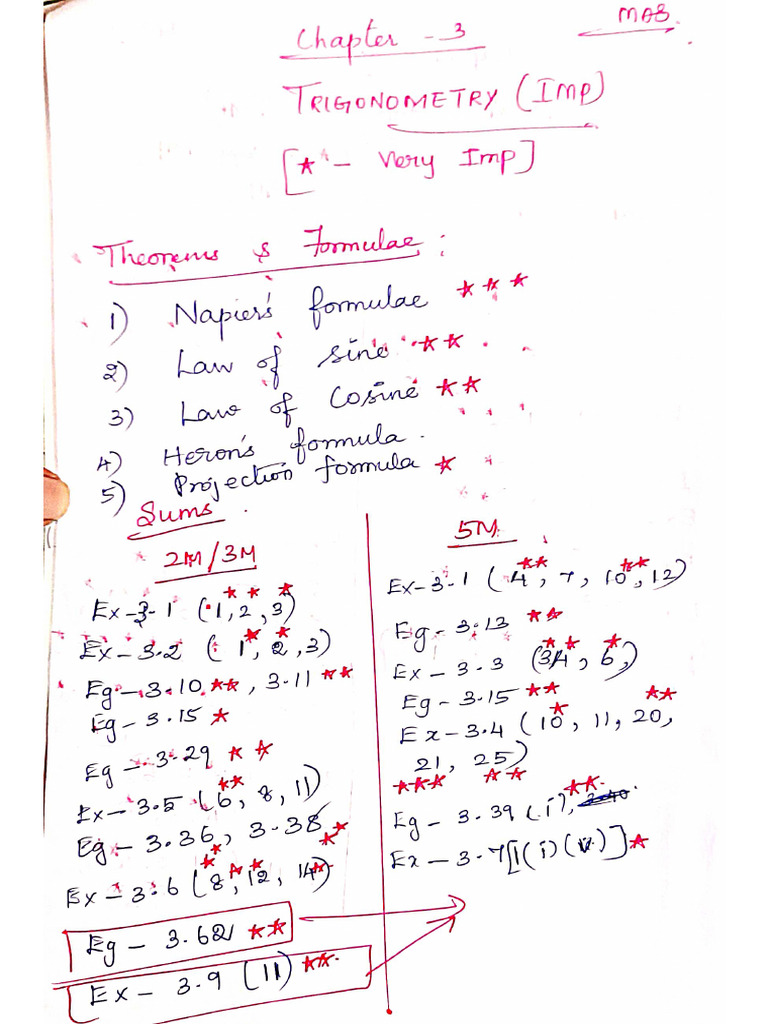 Chapter - 3
MAB.
TRIGONOMETRY (IMP)
[★ - Very Imp]
Theorems & Formulae :
1) Napier's formulae ★★★
2) Law of sine ★★
3) Law of Cosine ★★
4) Heron's formula.
5) Projection formula ★
Sums.
2M/3M
Ex-3.1 (1, 2, 3)
Ex-3.2 (1, 2, 3)
Eg-3.10 ★★, 3.11 ★★
Eg-3.15 ★
Eg-3.29 ★★
Ex-3.5 (6, 8, 11)
Eg-3.36, 3.38 ★
Ex-3.6 (8, 12, 14)
Eg-3.62 ★★
Ex-3.9 (11) ★★.
5M
Ex-3.1 (4, 7, 10, 12)
Eg-3.13 ★★
Ex-3.3 (3, 4, 6,)
Eg-3.15 ★★
Ex-3.4 (10, 11, 20,
21, 25)
★★★ ★★
Eg-3.39 (i),
Ex-3.7 [1(i)(v)] ★